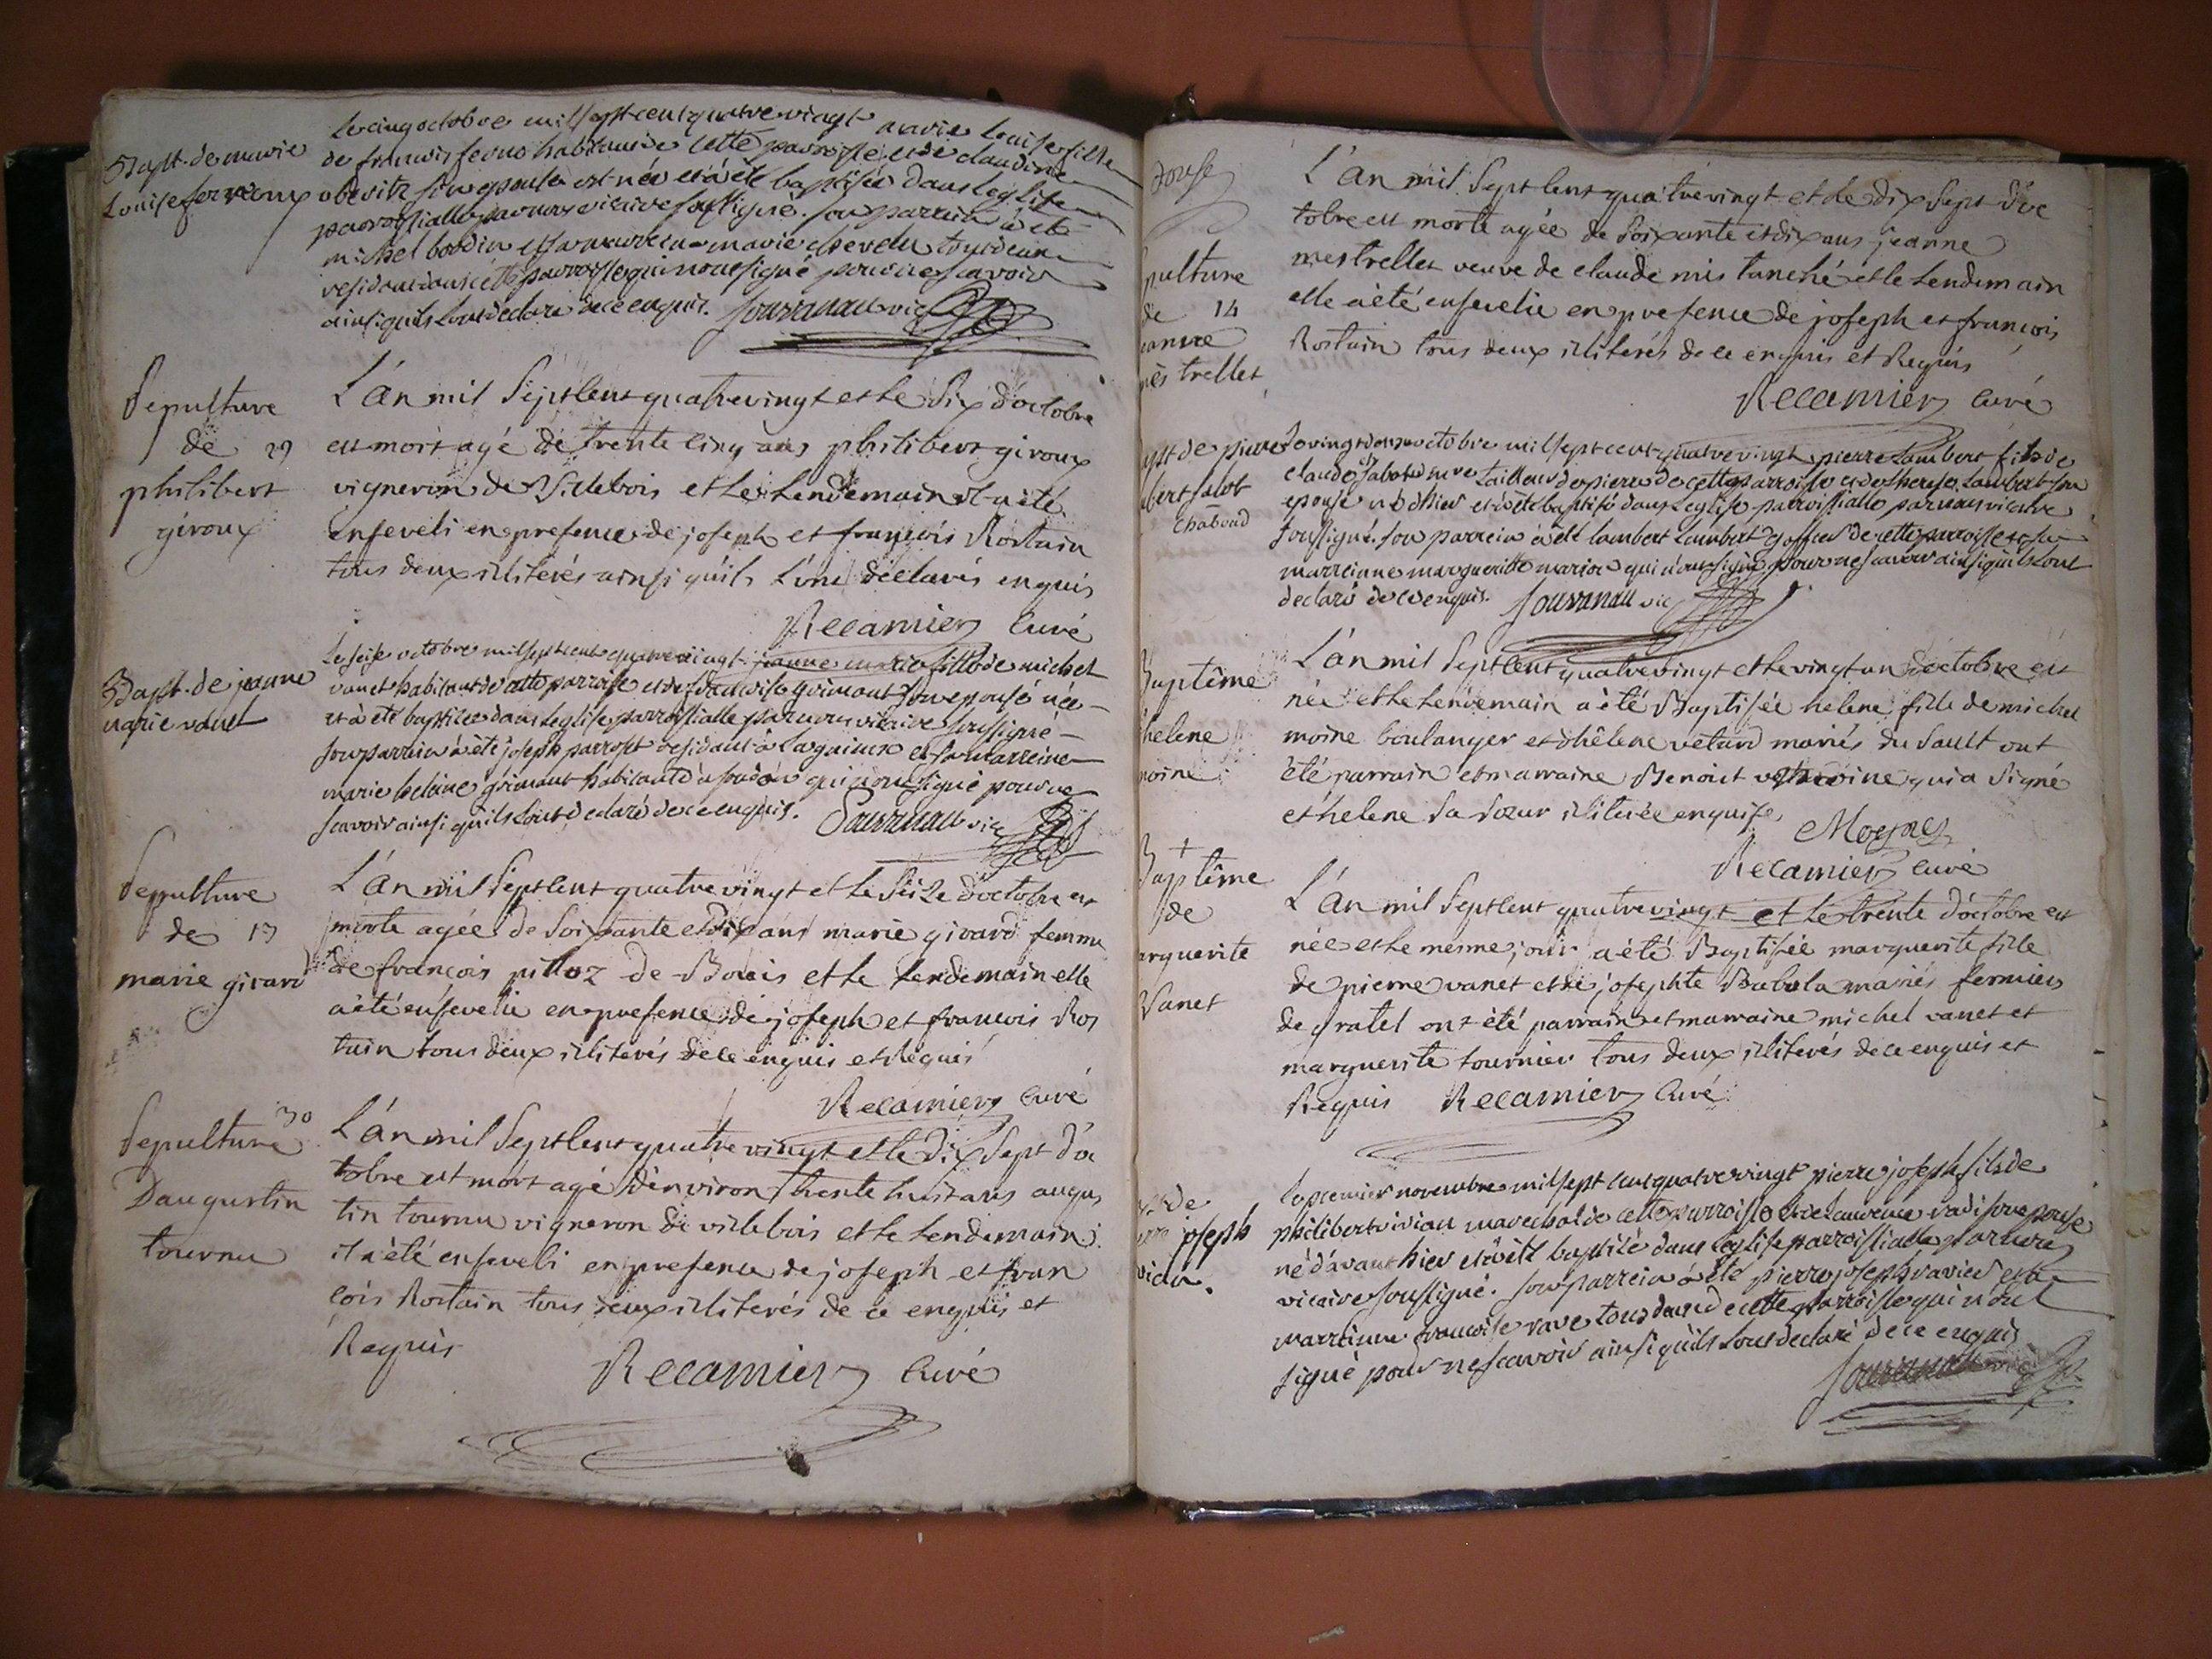 Bapt. de marie
Louise ferreoux
Le cinq octobre mil sept cent quatre vingt marie Louise fille
de francois habitant de cette parroisse et de claudine
son epouse est née et à été baptisée dans l'eglise
parroissialle par nous vicaire soussigné. son parrein à été
michel bordin et sa marreine marie chevelu tous deux
residant dans cette parroisse qui n'ont signé pour ne scavoir
ainsi quils l'ont declaré de ce enquis. Souvanau vic
Sepulture
de 29
philibert
giroux
L'an mil Sept Cent quatre vingt et le Six d'octobre
est mort agé de trente Cinq ans philibert giroux
vigneron de Villebois et le Lendemain il a été
enseveli en presence de joseph et françois Rostain
tous deux illiterés ainsi qu'ils L'ont déclarés enquis
Recamier Curé
Bapt. de jeanne
marie vanet
Le seise octobre mil sept cent quatre vingt jeanne marie fille de michel
vanet habitant de cette parroisse et de francoise grimant son epouse née
et à été baptisée dans l'eglise parroissialle par nous vicaire soussigné
son parrein à été joseph parroset residant à Lagnieux et sa marreine
marie helaine grimant habitante à qui n'ont signé pour ne
scavoir ainsi quils l'ont declaré de ce enquis. Souvanau vic
Sepulture
de 13
marie girard
L'an mil Sept Cent quatre vingt et le Seize d'octobre est
morte agée de Soixante et dix ans marie girard femme
de françois pilloz de Bouis et le Lendemain elle
a été ensevelie en presence de joseph et francois Ros
tain tous deux illiterés de ce enquis et Requis
Recamier Curé
Sepulture 30
Daugustin
tournu
L'an mil Sept Cent quatre vingt et le Dix Sept d'oc
tobre est mort agé d'environ trente huit ans augus
tin tournu vigneron de villebois et le Lendemain
il a été enseveli en presence de joseph et fran
cois Rostain tous deux illiterés de ce enquis et
Requis
Recamier Curé
pulture
de 14
eanne
mes trellet
L'an mil Sept Cent quatre vingt et le dix Sept d'oc
tobre est morte agée de Soixante et dix ans jeanne
mestrellet veuve de claude mis tanché et le Lendemain
elle a été ensevelie en presence de joseph et françois
Rostain tous deux illiterés de ce enquis et Requis
Recamier Curé
apt de pierre
mbert
chaboud
Le vingt octobre mil sept cent quatre vingt pierre Lambert fils de
claude tailleur de pierre de cette parroisse et de therese Lambert son
epouse né d'hier et à été baptisé dans l'eglise parroissialle par nous vicaire
soussigné. son parrein à été lambert Lambert de cette parroisse et sa
marreinne marguerite marion qui n'ont signé pour ne scavoir ainsi quils l'ont
declaré de ce enquis. Souvanau vic
Baptême
helene
moine
L'an mil Sept Cent quatre vingt et le vingt un d'octobre est
née et le Lendemain a été Baptisée helene fille de michel
moine boulanger et d'hélene vetard mariés du Sault ont
été parrain et marraine Benoict moine qui a Signé
et helene Sa Sœur illiterée enquise
Moyne
Recamier Curé
+
Baptême
de
arguerite
Vanet
L'an mil Sept Cent quatre vingt et le trente d'octobre est
née et le mesme jour a été Baptisée marguerite fille
de pierre vanet et de josephte Babola mariés fermiers
de gratel ont été parrain et marraine michel vanet et
marguerite tournier tous deux illiterés de ce enquis et
Requis Recamier Curé
de
joseph
vian.
Le premier novembre mil sept cent quatre vingt pierre joseph fils de
philibert vivian marechal de cette parroisse et de Laurence vadi son epouse
né d'avant hier et à été baptisé dans l'eglise parroissialle par nous
vicaire soussigné. son parrein à été pierre joseph ravier et sa
marreinne francoise rave tous deux de cette parroisse qui n'ont
signé pour ne scavoir ainsi quils l'ont declaré de ce enquis
Souvanau vic